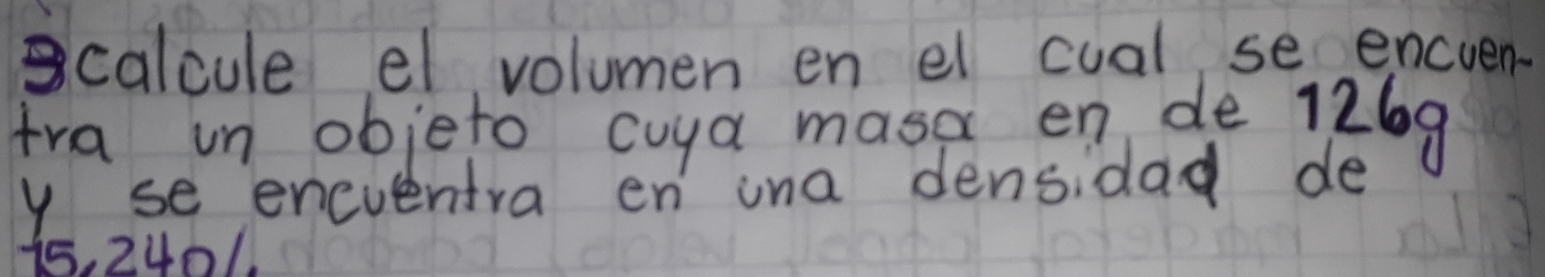 3 calcule el volumen en el cual se encuen-
tra un objeto cuya masa en de 126g
y se encuentra en una densidad de
15,24